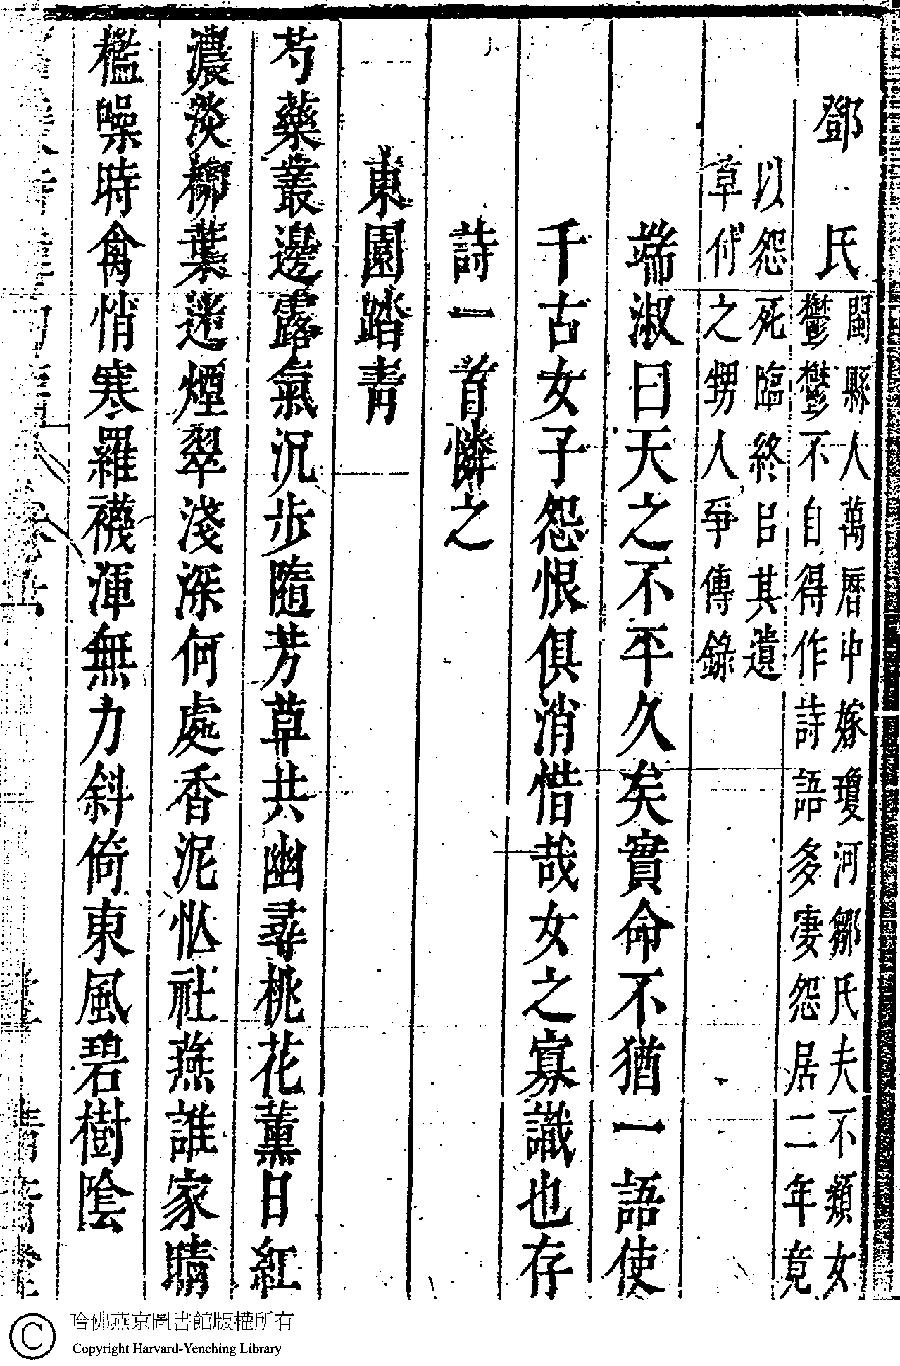 鄧氏
閩縣人萬曆中嫁瓊河鄒氏夫不類女
鬱鬱不自得作詩語多凄怨居二年竟
以怨死臨終吕其遺
草付之甥人爭傳錄
端淑曰天之不平久矣實命不猶一語使
千古女子怨恨俱消惜哉女之寡識也存
詩一首憐之
東園踏青
芍藥叢邊露氣沉步隨芳草共幽尋桃花薰日紅
濃淡柳葉迷煙翠淺深何處香泥忙社燕誰家晴
檻噪時禽悄寒羅襪渾無力斜倚東風碧樹陰
哈佛燕京圖書館版權所有
Copyright Harvard-Yenching Library